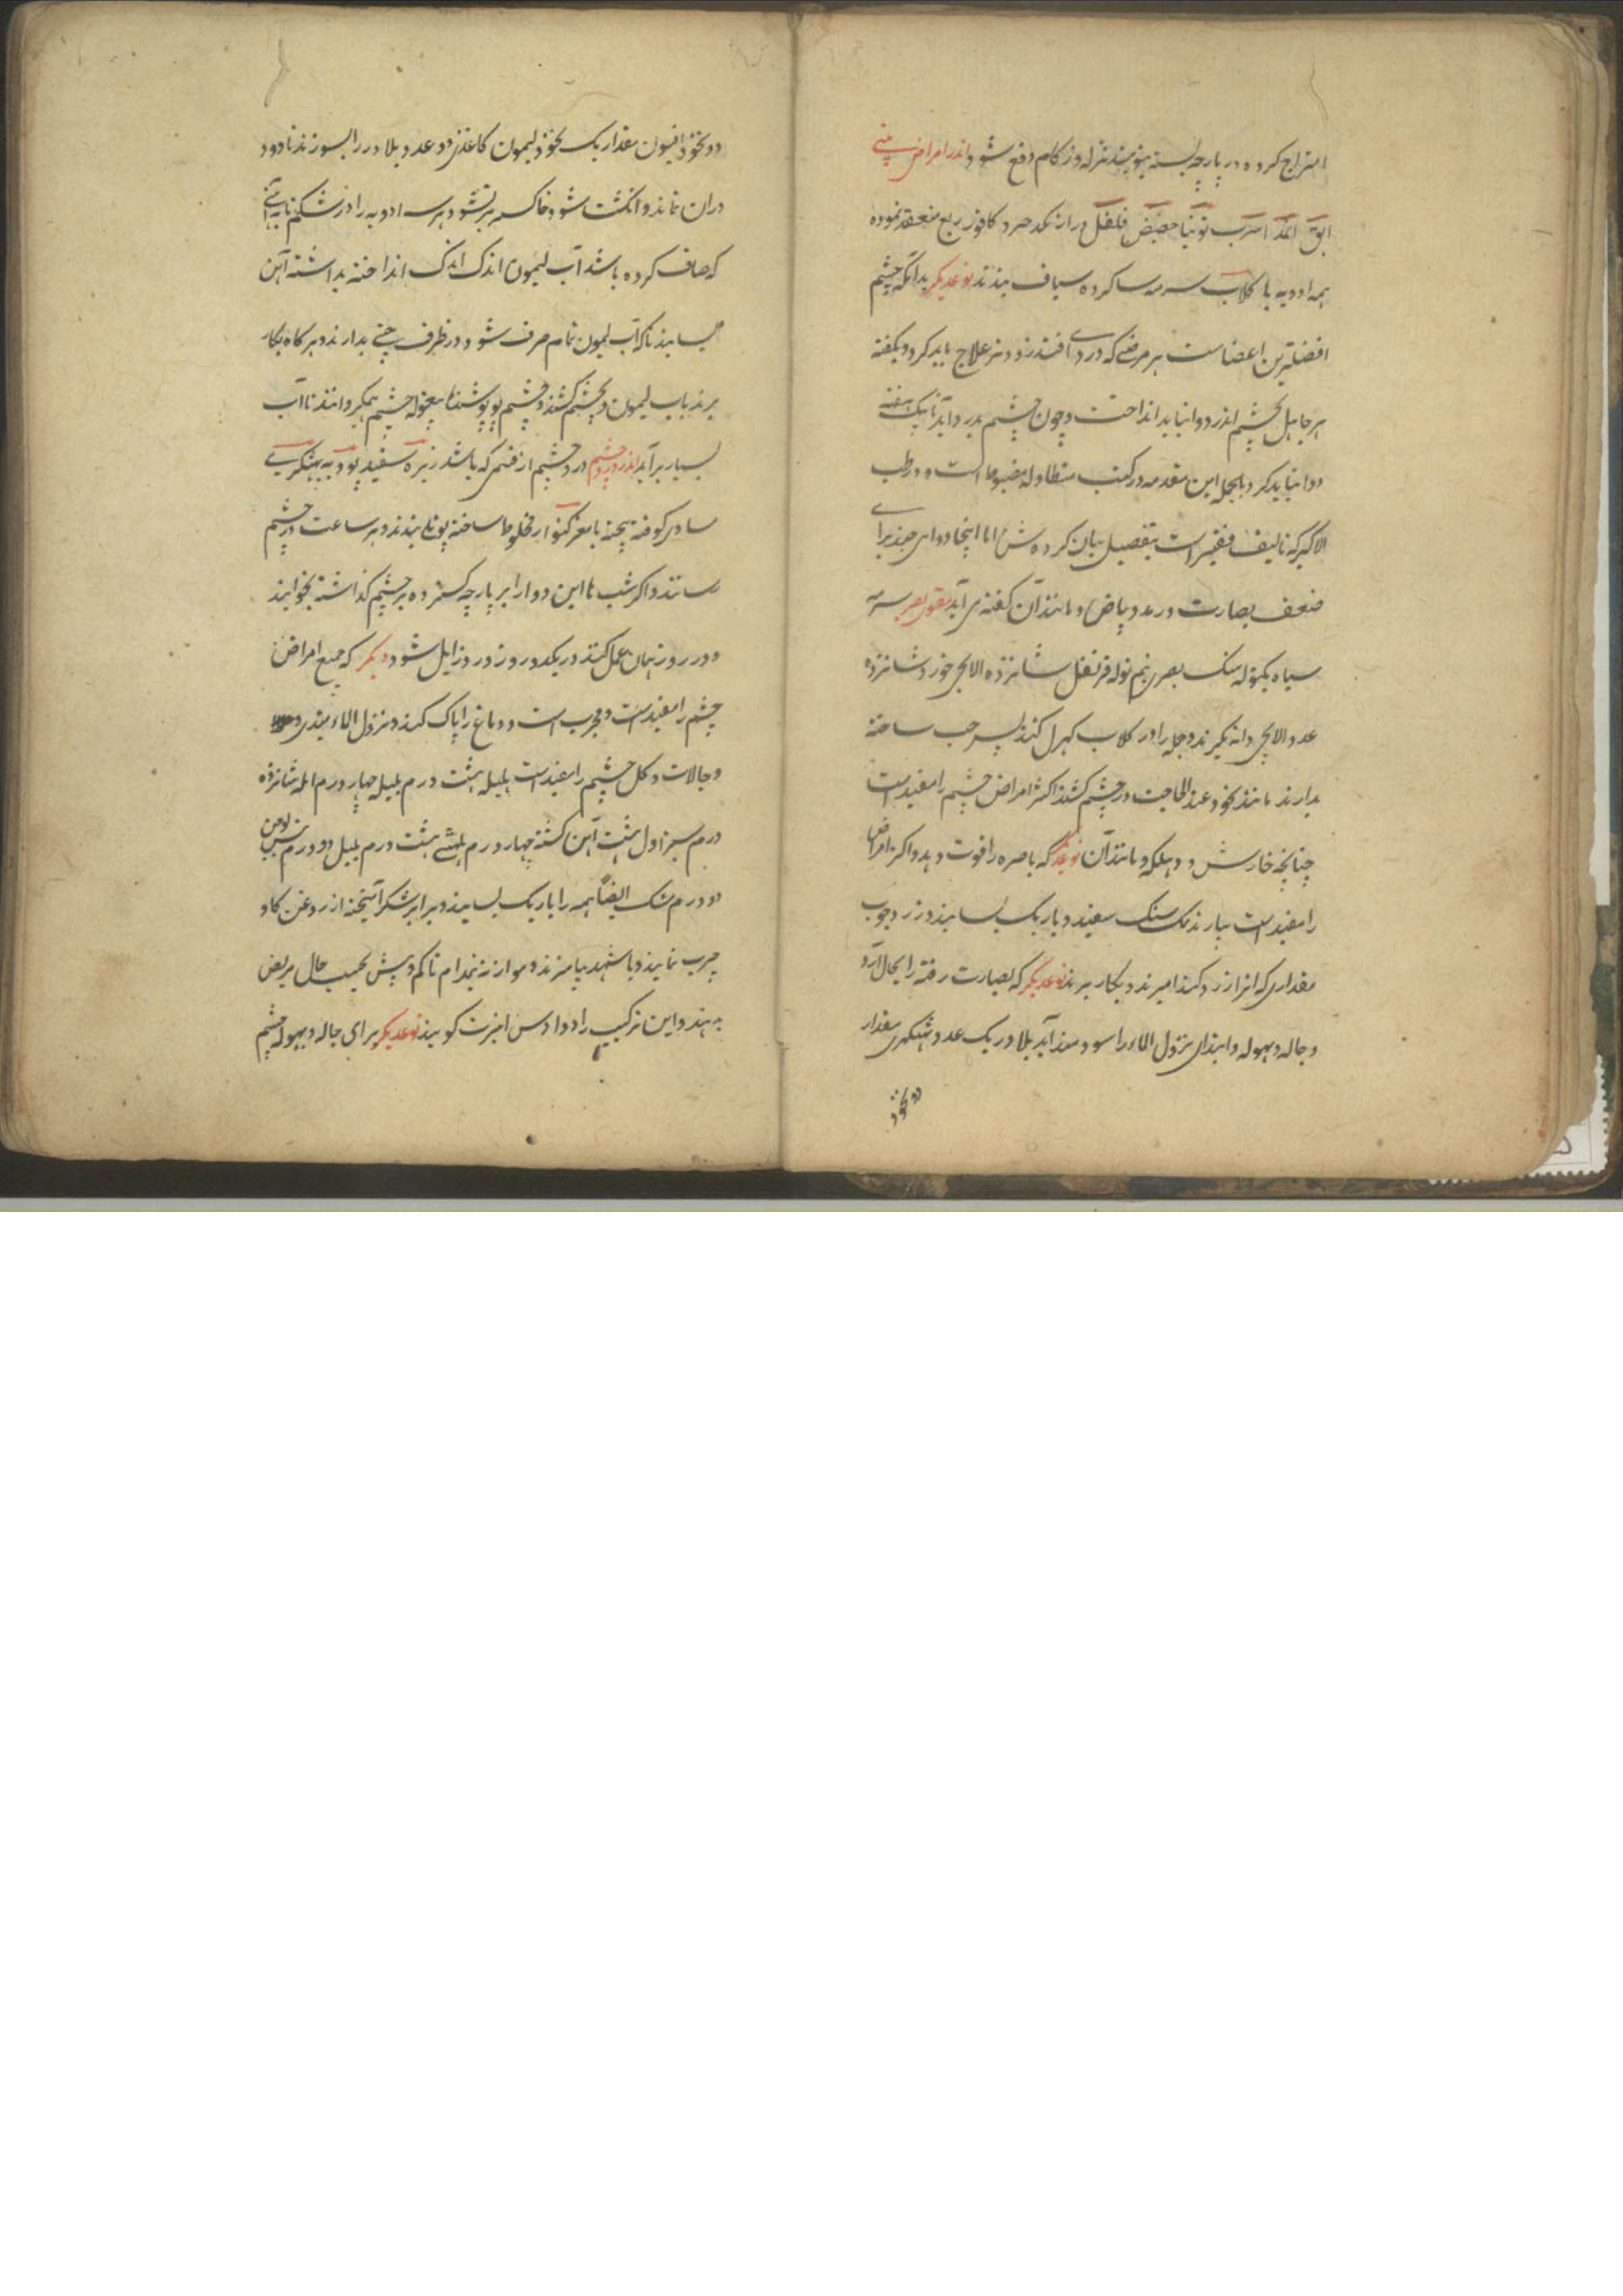 امتزاج کرده در پارچه بسته ببویند نزله و زکام دفع شود اندر امراض بینی
ابق اثمد اسرب توتیا حضض فلفل دراز یکدرم و کافور ربع منعقد نموده
همه ادویه با گلاب سرمه سا کرده سیاف بندند نوعدیگر بدانکه چشم
افضلترین اعضاست هر مرضی که در وی افتد زودتر علاج باید کرد و بگفته
هر جاهل بچشم اندر دوا نباید انداخت و چون چشم بدرد آید تا یک هفته
دوا نباید کرد بالجمله این مقدمه در کتب متطاوله مضبوط است و در طب
الاکبر که تالیف فقیر است بتفصیل بیان کرده شد اما اینجا دوای چند برای
ضعف بصارت و رمد و بیاض و مانند آن گفته می آید مقوی بصر سرمه
سیاه یکتوله سنگ بصری نیم توله قرنفل شانزده الایچی خورد شانزده
عدد الایچی دانه بگیرند و جمله را در گلاب کهرل کنند پس حب ساخته
بدارند مانند نخود عند الحاجت در چشم کشند اکثر امراض چشم را مفید است
چنانچه خارش و دهلکه و مانند آن نوعدیگر که باصره را قوت دهد و اکثر امراض
را مفید است بیارند نمک سنگ سفید و باریک بسایند و زرد چوب
مقداری که انرا زرد کند امیزند و بکار برند نوعدیگر که بصارت رفته را بحال آرد
و جاله و پهوله و ابتدای نزول الماء را سودمند آید بلادر یک عدد پتکهری مقدار
دو نخود
دو نخود افیون مقدار یک نخود لیمون کاغذی دو عدد بلادر را بسوزند تا دود
دران نماند و انگشت شود خاکستر نشود و هر سه ادویه را در شکم تابه آهنی
که صاف کرده باشد آب لیمون اندک اندک انداخته بداشته آهن
بسایند تا که آب لیمون تمام صرف شود و در ظرف چینی بدارند و هر کاه بکار
برند باب لیمون بچشم کشند و چشم بپوشند پیغوله چشم بگردانند تا آب
بسیار بر آید اندر درد چشم درد چشم از قسمی که باشد زیره سفید لود پهتکری
مساوی کوفته بیخته با مغز کنوار مخلوط ساخته پوتلی بندند و هر ساعت در چشم
رسانند و اکر شب ها این دوا را بر پارچه گسترده بر چشم گذاشته بخوابند
و در روز همان عمل کنند در یکدو روز درد زایل شود دیگر که جمیع امراض
چشم را مفید است و مجرب است و دماغ را پاک کند و نزول الماء مبتدی
و جالات و کل چشم را مفید است هلیله هشت درم بلیله چهار درم امله شانزده
درم سبز اول هشت آهن کشته چهار درم ملهٹی هشت درم پیپل دو درم
دو درم نمک ایضا همه را باریک بسایند و برابر شکر آمیخته از روغن کاو
چرب نمایند و با شهد بیامیزند و موازنه نیمدام تا کم و بیش بحسب حال مریض
بدهند و این ترکیب را دوادس امرت گویند نوعدیگر برای جاله و پهوله چشم